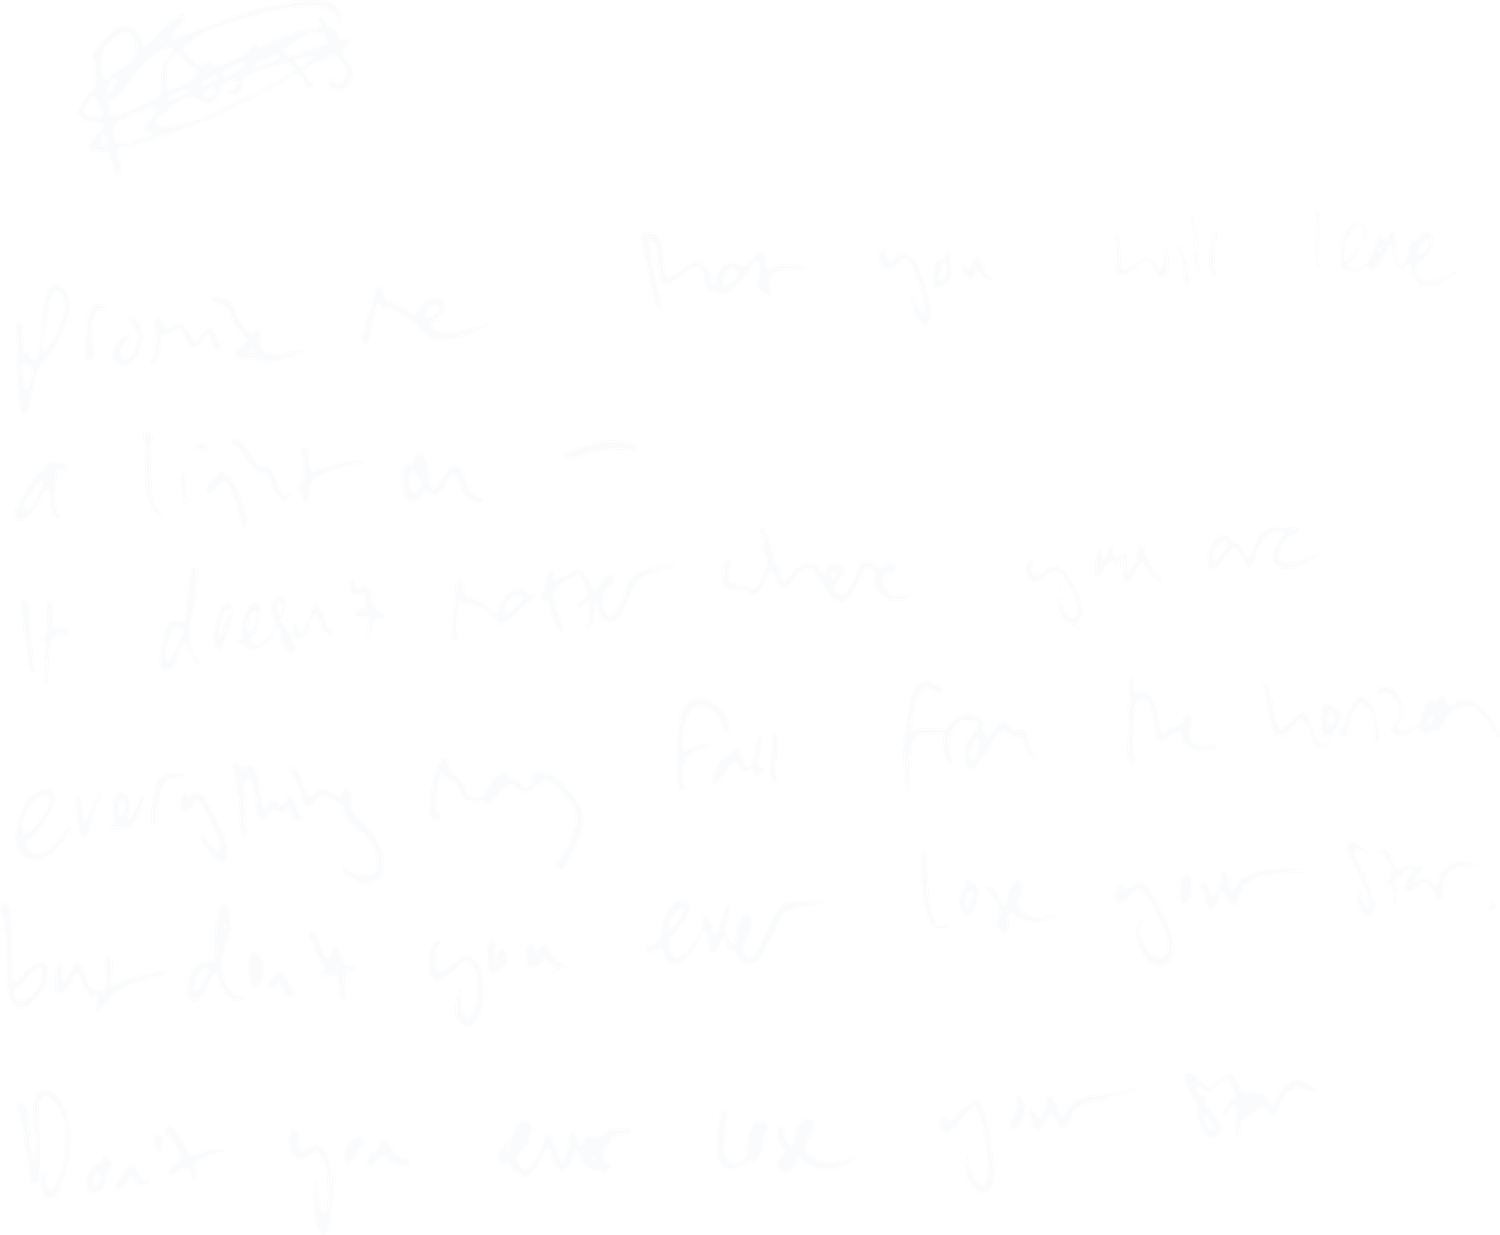 promise me that you will leave
a light on —
It doesn't matter where you are
everything may fall from the horizon
but don't you ever lose your star.
Don't you ever lose your star